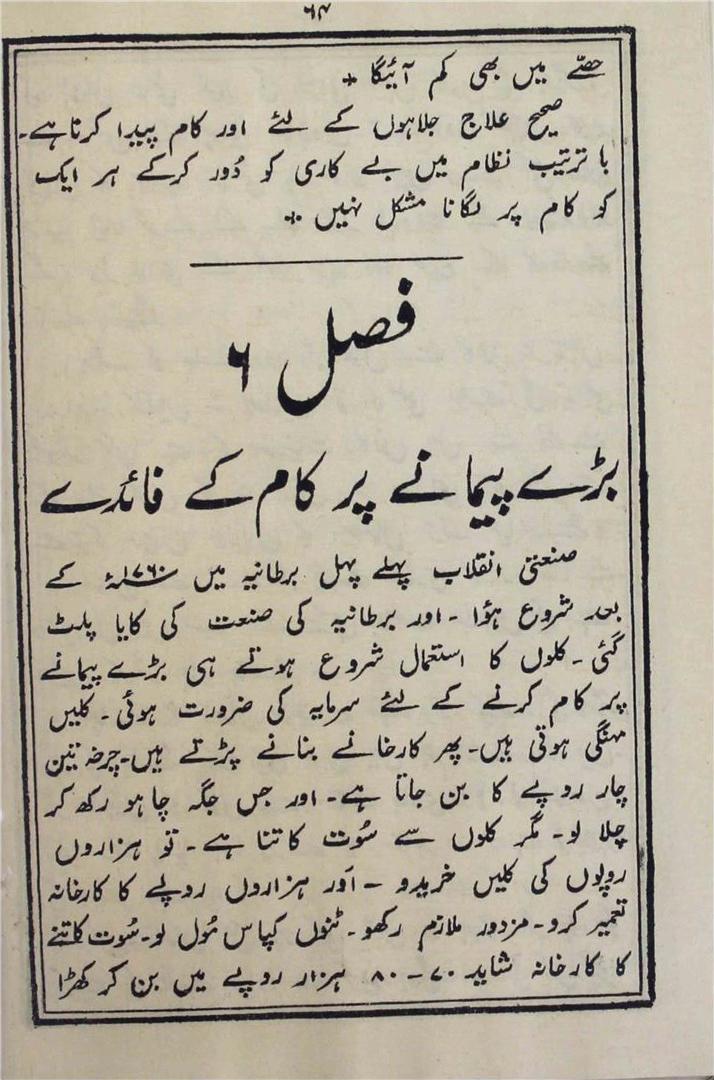 ۶۴
حصّے میں بھی کم آئیگا +
صحیح علاج جلاہوں کے لئے اور کام پیدا کرنا ہے۔
با ترتیب نظام میں بے کاری کو دُور کرکے ہر ایک
کو کام پر لگانا مشکل نہیں +
فصل ۶
بڑے پیمانے پر کام کے فائدے
صنعتی انقلاب پہلے پہل برطانیہ میں ۱۷۶۰ء کے
بعد شروع ہؤا ۔ اور برطانیہ کی صنعت کی کایا پلٹ
گئی ۔ کلوں کا استعمال شروع ہوتے ہی بڑے پیمانے
پر کام کرنے کے لئے سرمایہ کی ضرورت ہوئی ۔ کلیں
مہنگی ہوتی ہیں ۔ پھر کارخانے بنانے پڑتے ہیں ۔ چرخہ تین
چار روپے کا بن جاتا ہے ۔ اور جس جگہ چاہو رکھ کر
چلا لو ۔ مگر کلوں سے سُوت کاتنا ہے ۔ تو ہزاروں
روپوں کی کلیں خریدو ۔ اَور ہزاروں روپے کا کارخانہ
تعمیر کرو ۔ مزدور ملازم رکھو ۔ ٹنوں کپاس مُول لو ۔ سُوت کاتنے
کا کارخانہ شاید ۷۰ ۔ ۸۰ ہزار روپے میں بن کر کھڑا